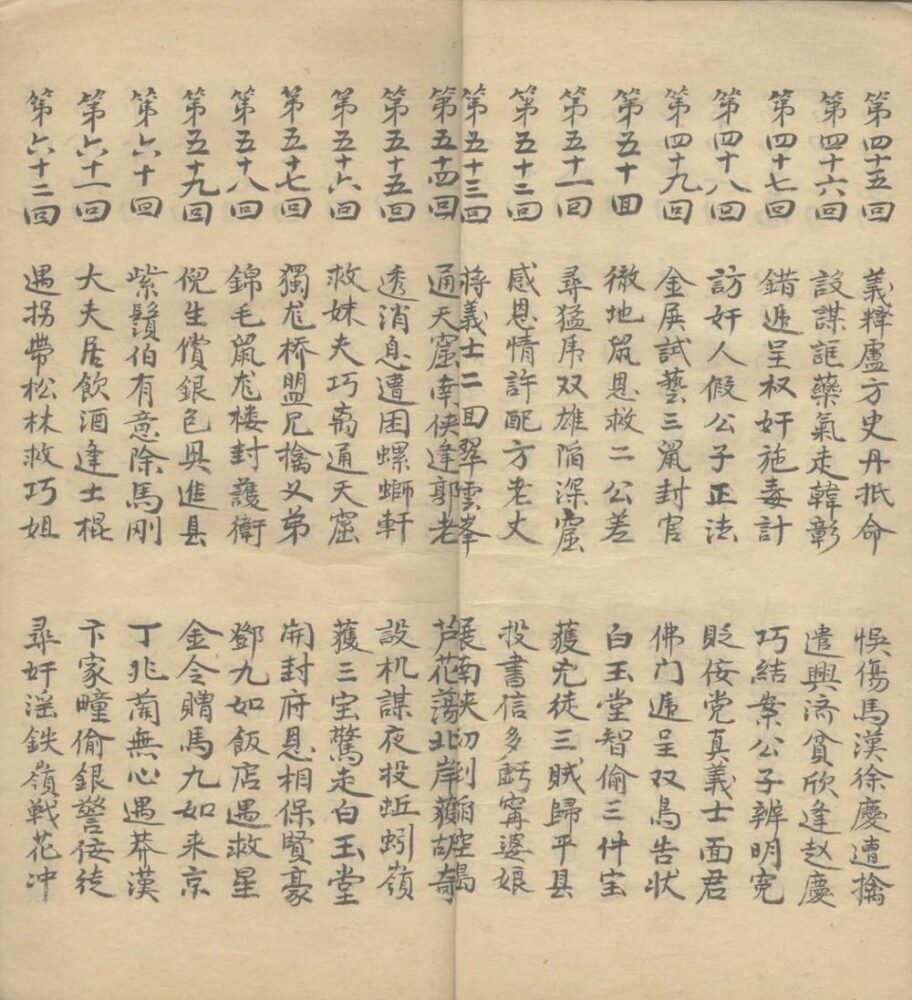 第四十五回 義釋盧方史丹抵命 悞傷馬漢徐慶遭擒
第四十六回 設謀誆藥氣走韓彰 遣興濟貧欣逢赵慶
第四十七回 錯遞呈权奸施毒計 巧結案公子辨明冤
第四十八回 訪奸人假公子正法 貶佞党真義士面君
第四十九回 金殿試藝三鼠封官 佛门遞呈双鳥告状
第五十回 徹地鼠恩救二公差 白玉堂智偷三件宝
第五十一回 尋猛虎双雄陷深窟 獲凶徒三贼歸平县
第五十二回 感恩情許配方老丈 投書信多虧寗婆娘
第五十三回 蒋義士二回翠雲峯 展南俠初到陷空島
第五十四回 通天窟南俠逢郭老 芦花蕩北岸獲胡奇
第五十五回 透消息遭困螺螄軒 設机謀夜投蚯蚓嶺
第五十六回 救妹夫巧离通天窟 獲三宝驚走白玉堂
第五十七回 獨龙桥盟兄擒义弟 開封府恩相保賢豪
第五十八回 錦毛鼠龙楼封護衛 鄧九如飯店遇救星
第五十九回 倪生償銀包興進县 金令贈馬九如来京
第六十回 紫鬚伯有意除馬刚 丁兆蘭無心遇莽漢
第六十一回 大夫居飲酒逢士棍 卞家疃偷銀警佞徒
第六十二回 遇拐带松林救巧姐 尋奸淫鉄嶺戦花冲